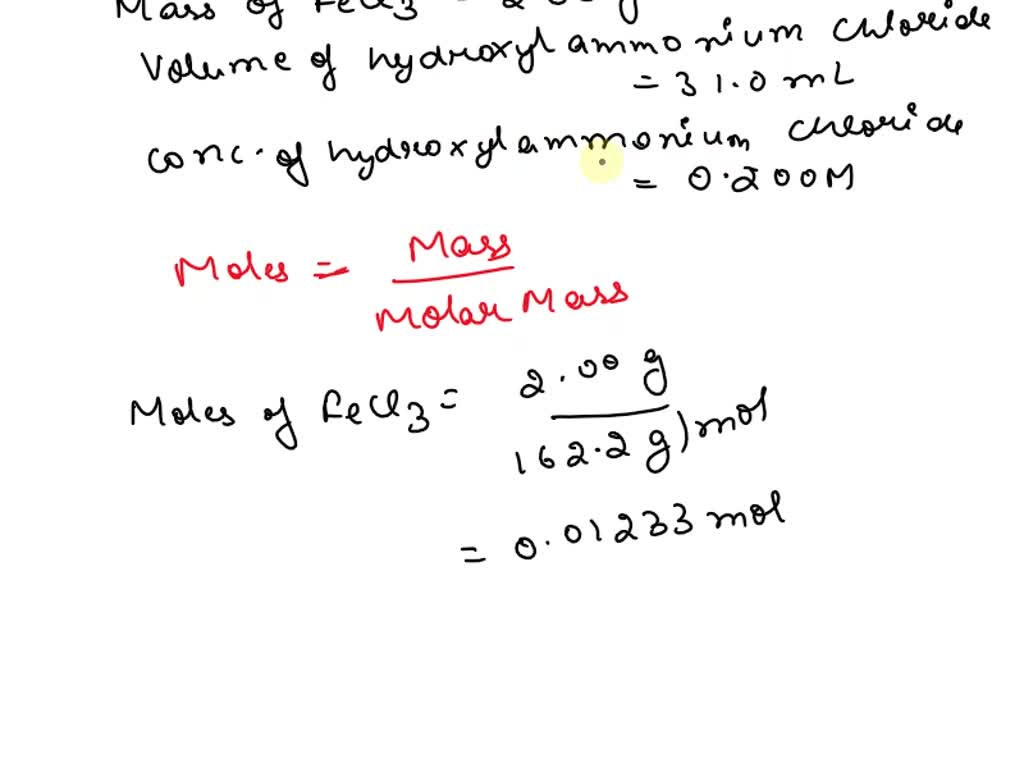 Mass of FeCl3 = 2.00 g
Volume of hydroxylammonium chloride
= 31.0 mL
conc. of hydroxylammonium chloride
= 0.200M
Moles = Mass
Molar Mass
Moles of FeCl3 = 2.00 g
162.2 g/mol
= 0.01233 mol